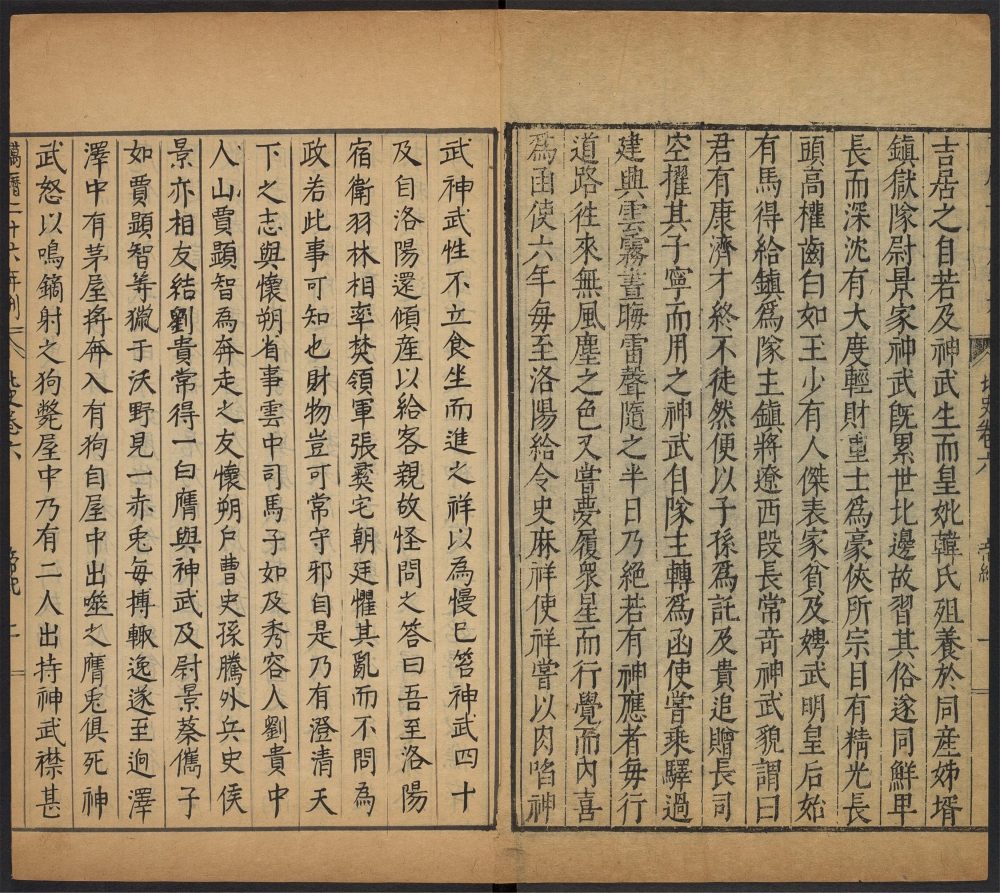 吉居之自若及神武生而皇妣韓氏殂養於同産姊壻
鎮獄隊尉景家神武旣累世北邊故習其俗遂同鮮卑
長而深沈有大度輕財重士爲豪俠所宗目有精光長
頭高權齒白如玉少有人傑表家貧及娉武明皇后始
有馬得給鎮爲隊主鎮將遼西段長常奇神武貌謂曰
君有康濟才終不徒然便以子孫爲託及貴追贈長司
空擢其子寧而用之神武自隊主轉爲函使嘗乘驛過
建興雲霧晝晦雷聲隨之半日乃絕若有神應者每行
道路徃來無風塵之色又嘗夢履衆星而行覺而內喜
爲函使六年每至洛陽給令史麻祥使祥嘗以肉啗神
武神武性不立食坐而進之祥以為慢已笞神武四十
及自洛陽還傾産以給客親故怪問之答曰吾至洛陽
宿衛羽林相率焚領軍張彜宅朝廷懼其亂而不問為
政若此事可知也財物豈可常守邪自是乃有澄清天
下之志與懷朔省事雲中司馬子如及秀容人劉貴中
山人賈顯智為奔走之友懷朔戶曹史孫騰外兵史侯
景亦相友結劉貴常得一白鷹與神武及尉景蔡儁子
如賈顯智等獵于沃野見一赤兎每搏輙逸遂至迥澤
澤中有茅屋將奔入有狗自屋中出噬之鷹兎俱死神
武怒以鳴鏑射之狗斃屋中乃有二人出持神武襟甚
萬曆二十六年刊 北史卷六 帝紀 二